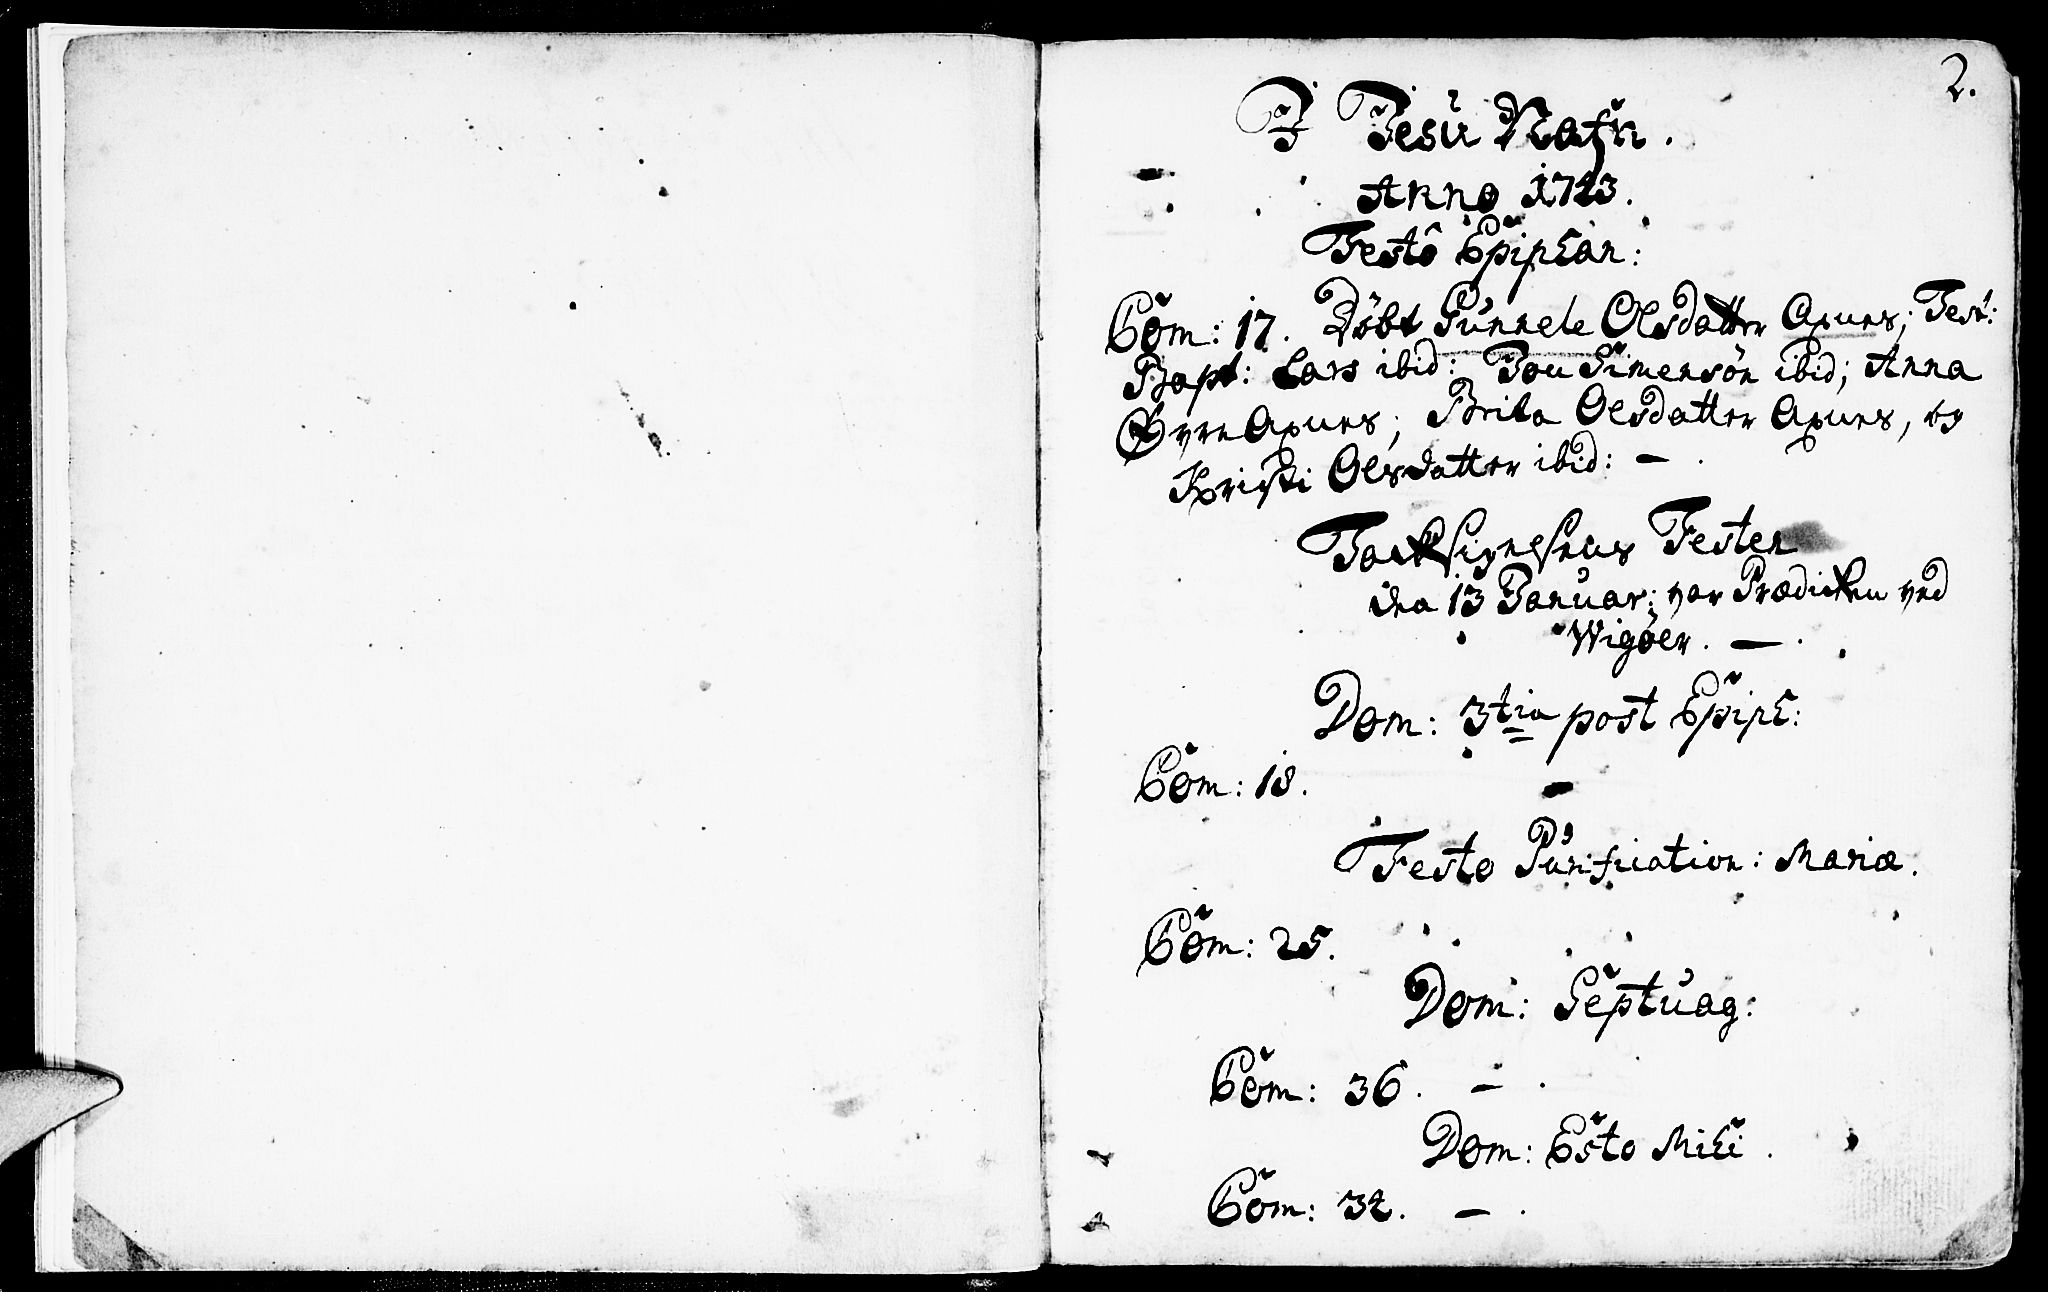 2.
J Jesu Nafn.
Anno 1723.
Festo Epiphan:
Com: 17. Döbt Gunnele Olsdatter Axnes; Test:
Bapt: Lars ibid: Jon Simensön ibid; Anna
Øvre Axnes; Brita Olsdatter Axnes, og
Kristi Olsdatter ibid: –
Taksigelsens Festen
den 13 Januar: var Prædicken ved
Wigöer. –
Dom: 3tia post Epiph:
Com: 18.
Festo Purification: Mariæ.
Com: 25.
Dom: Septuag:
Com: 36. –
Dom: Esto Mihi.
Com: 32. –